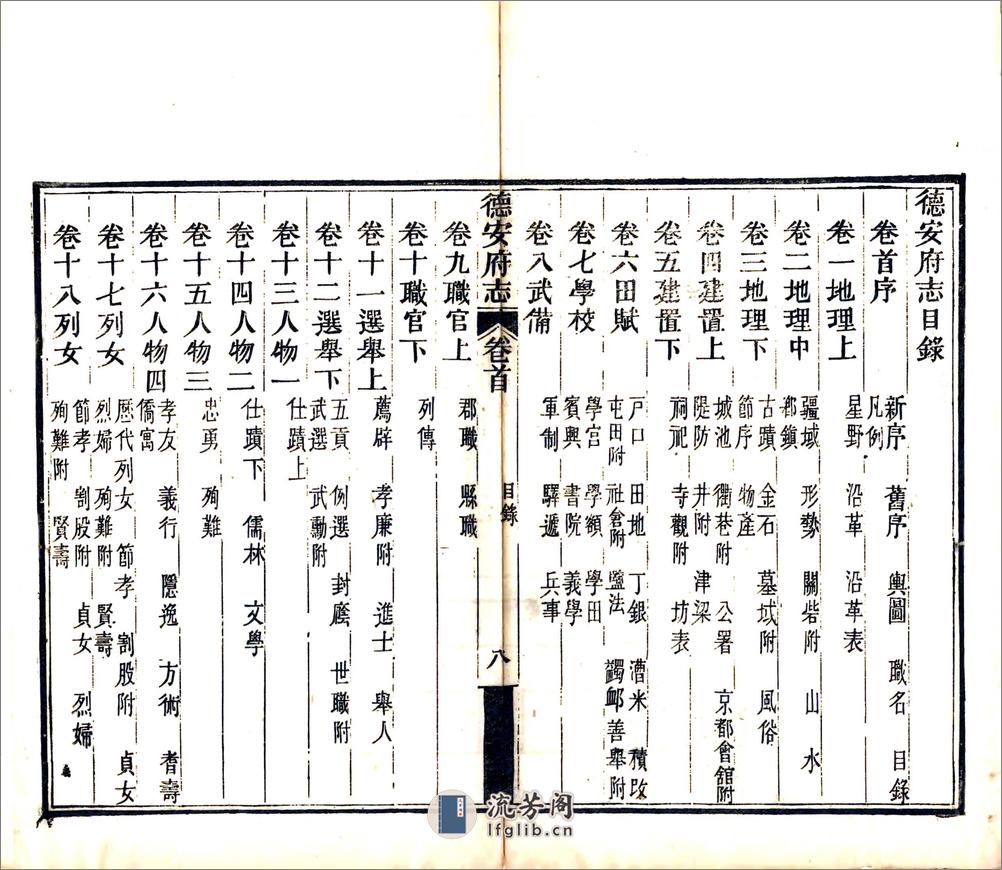 德安府志目錄
卷首序
新序 舊序 輿圖 職名 目錄
凡例
卷一地理上
星野 沿革 沿革表
卷二地理中
疆域 形勢 關砦附 山 水
郡鎮
卷三地理下
古蹟 金石 墓域附 風俗
節序 物產
卷四建置上
城池 衢巷附 公署 京都會舘附
隄防 井附 津梁
卷五建置下
祠祀 寺觀附 坊表
卷六田賦
户口 田地 丁銀 漕米 積改
屯田附 社倉附 鹽法 蠲卹善舉附
卷七學校
學宫 學額 學田
賓興 書院 義學
卷八武備
軍制 驛遞 兵事
德安府志 卷首 目錄 八
卷九職官上
郡職 縣職
卷十職官下
列傳
卷十一選舉上
薦辟 孝廉附 進士 舉人
卷十二選舉下
五貢 例選 封廕 世職附
武選 武勳附
卷十三人物一
仕蹟上
卷十四人物二
仕蹟下 儒林 文學
卷十五人物三
忠勇 殉難
卷十六人物四
孝友 義行 隱逸 方術 耆壽
僑寓
卷十七列女
歷代列女 節孝 割股附 貞女
烈婦 殉難附 賢壽
卷十八列女
節孝 割股附 貞女 烈婦
殉難附 賢壽
流芳阁
lfglib.cn